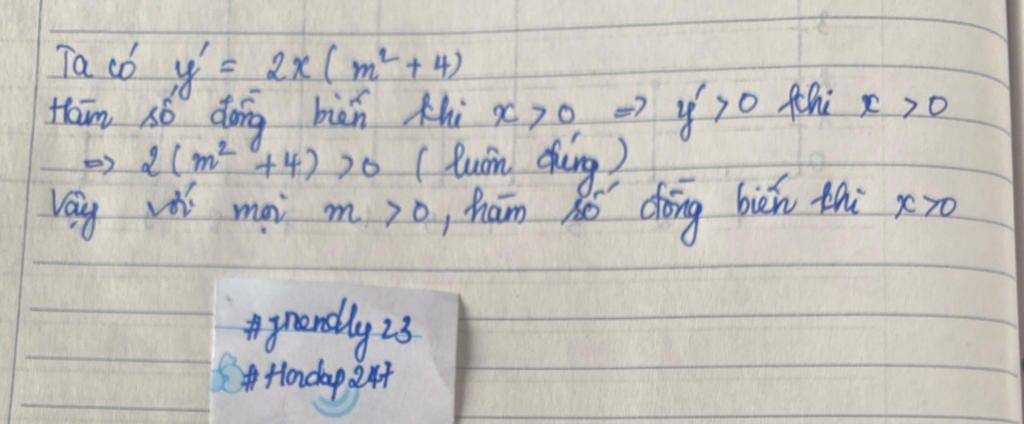 Ta có y' = 2x ( m² + 4)
Hàm số đồng biến khi x > 0 => y' > 0 khi x > 0
=> 2 ( m² + 4) > 0 ( luôn đúng )
Vậy với mọi m > 0, hàm số đồng biến khi x > 0
#friendly 23
#Hoidap 247